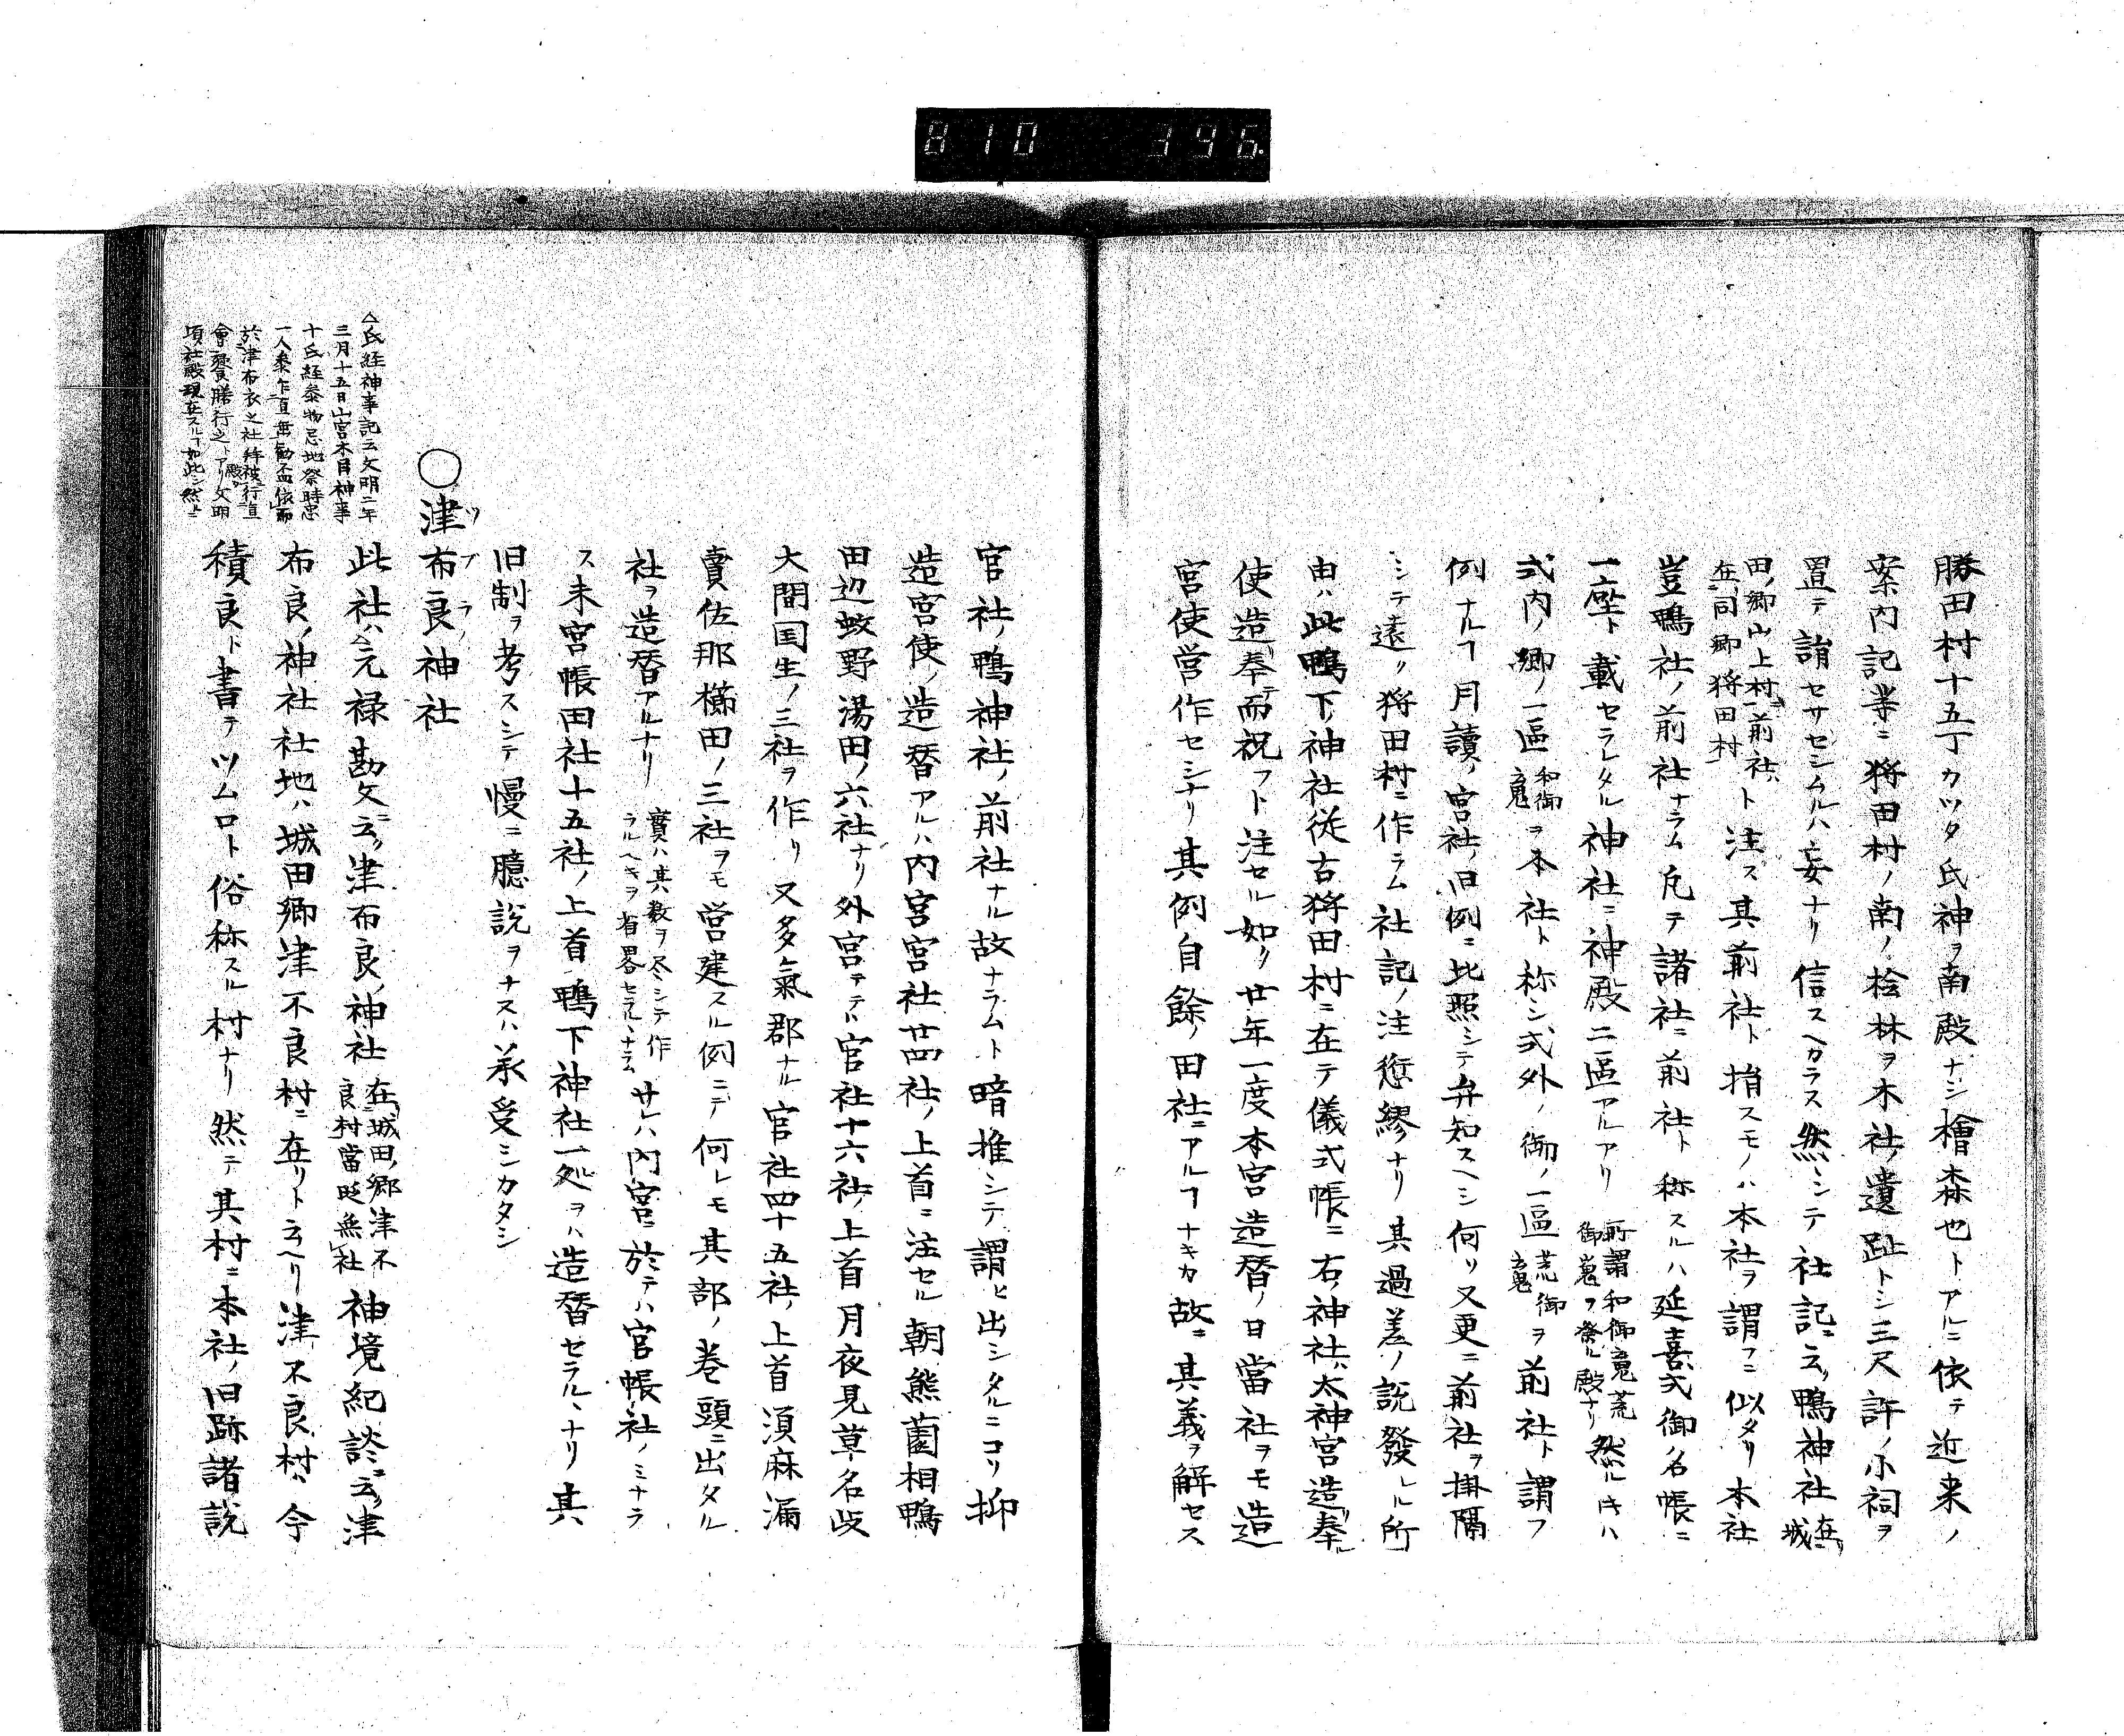 810 396.
勝田村十五丁カツタ氏神ヲ南殿ナシ檜森也トアルニ依テ近来ノ
案内記業ニ狩田村ノ南ノ桧林ヲ木社ノ遺趾トシ三尺許ノ小祠ヲ
置テ詣セサセシムルハ妄ナリ信スヘカラス然シテ社記ニ云ク鴨神社在城
田ノ郷山上村ニ前社ハ在同郷狩田村ト注ス其前社ト指スモノハ本社ヲ謂フニ似タリ本社
豈鴨社ノ前社ナラム凡テ諸社ニ前社ト称スルハ延喜式御名帳ニ
一座ト載セラレタル神社ニ神殿二區アルアリ所謂和御䰟荒御䰟ヲ祭ル殿ナリ然ルキハ
式内ノ郷ノ一區和御䰟ヲ本社ト称シ式外ノ御ノ一區荒御䰟ヲ前社ト謂フ
例ナルヿ月讀ノ宮社ノ旧例ニ比照シテ弁知スヘシ何リ又更ニ前社ヲ掛隔
ミシテ遠ク狩田村ニ作ラム社記ノ注愆繆ナリ其過差ノ説發レル所
由ハ此鴨下神社従古狩田村ニ在テ儀式帳ニ右ノ神社ハ太神宮造奉ル
使造奉而祝フト注セル如ク廿年一度本宮造替ノ日當社ヲモ造
宮使営作セシナリ其例自餘ノ田社ニアルヿナキカ故ニ其義ヲ解セス
官社ノ鴨神社ノ前社ナル故ナラムト暗推シテ謂ヒ出シタルニコソ抑
造宮使ノ造替アルハ内宮宮社廿四社ノ上首ニ注セル朝熊薗相鴨
田辺蚊野湯田ノ六社ナリ外宮ニテハ官社十六社ノ上首月夜見草名岐
大間国生ノ三社ヲ作リ又多氣郡ナル官社四十五社ノ上首須麻漏
賣佐那櫛田ノ三社ヲモ営建スル例ニテ何レモ其部ノ巻頭ニ出タル
社ヲ造替アルナリ實ハ其数ヲ尽シテ作ラルヘキヲ省畧セラルヽナラムサレハ内宮ニ於テハ官帳社ノミナラ
ス未官帳田社十五社ノ上首鴨下神社一処ヲハ造替セラルヽナリ其
旧制ヲ考スシテ慢ニ臆説ヲナスハ承受シカタシ
○津布良神社
ツブラノ
此社ハ△元禄勘文ニ云ク津布良ノ神社在城田ノ郷津不良村當时無社神境紀談ニ云ク津
布良ノ神社社地ハ城田郷津不良村ニ在リト云ヘリ津不良村ハ今
積良ト書テツムロト俗称スル村ナリ然テ其村ニ本社ノ旧跡諸説
△氏経神事記云文明二年
三月十五日山宮木目神事
十氏経参物忌地祭時忠
一人参乍直無勧盃依而
於津布衣之社拝殿被行直
會饗膳行之トアリ文明
頃社殿現在スルヿ如此シ然ルニ